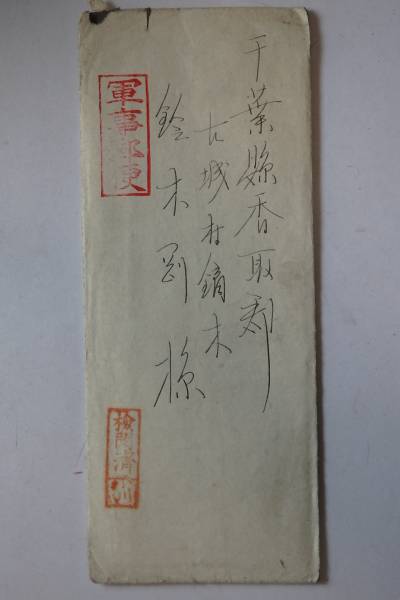 千葉縣香取郡
古城村鏑木
鈴木剛様
軍事郵便
検閲済